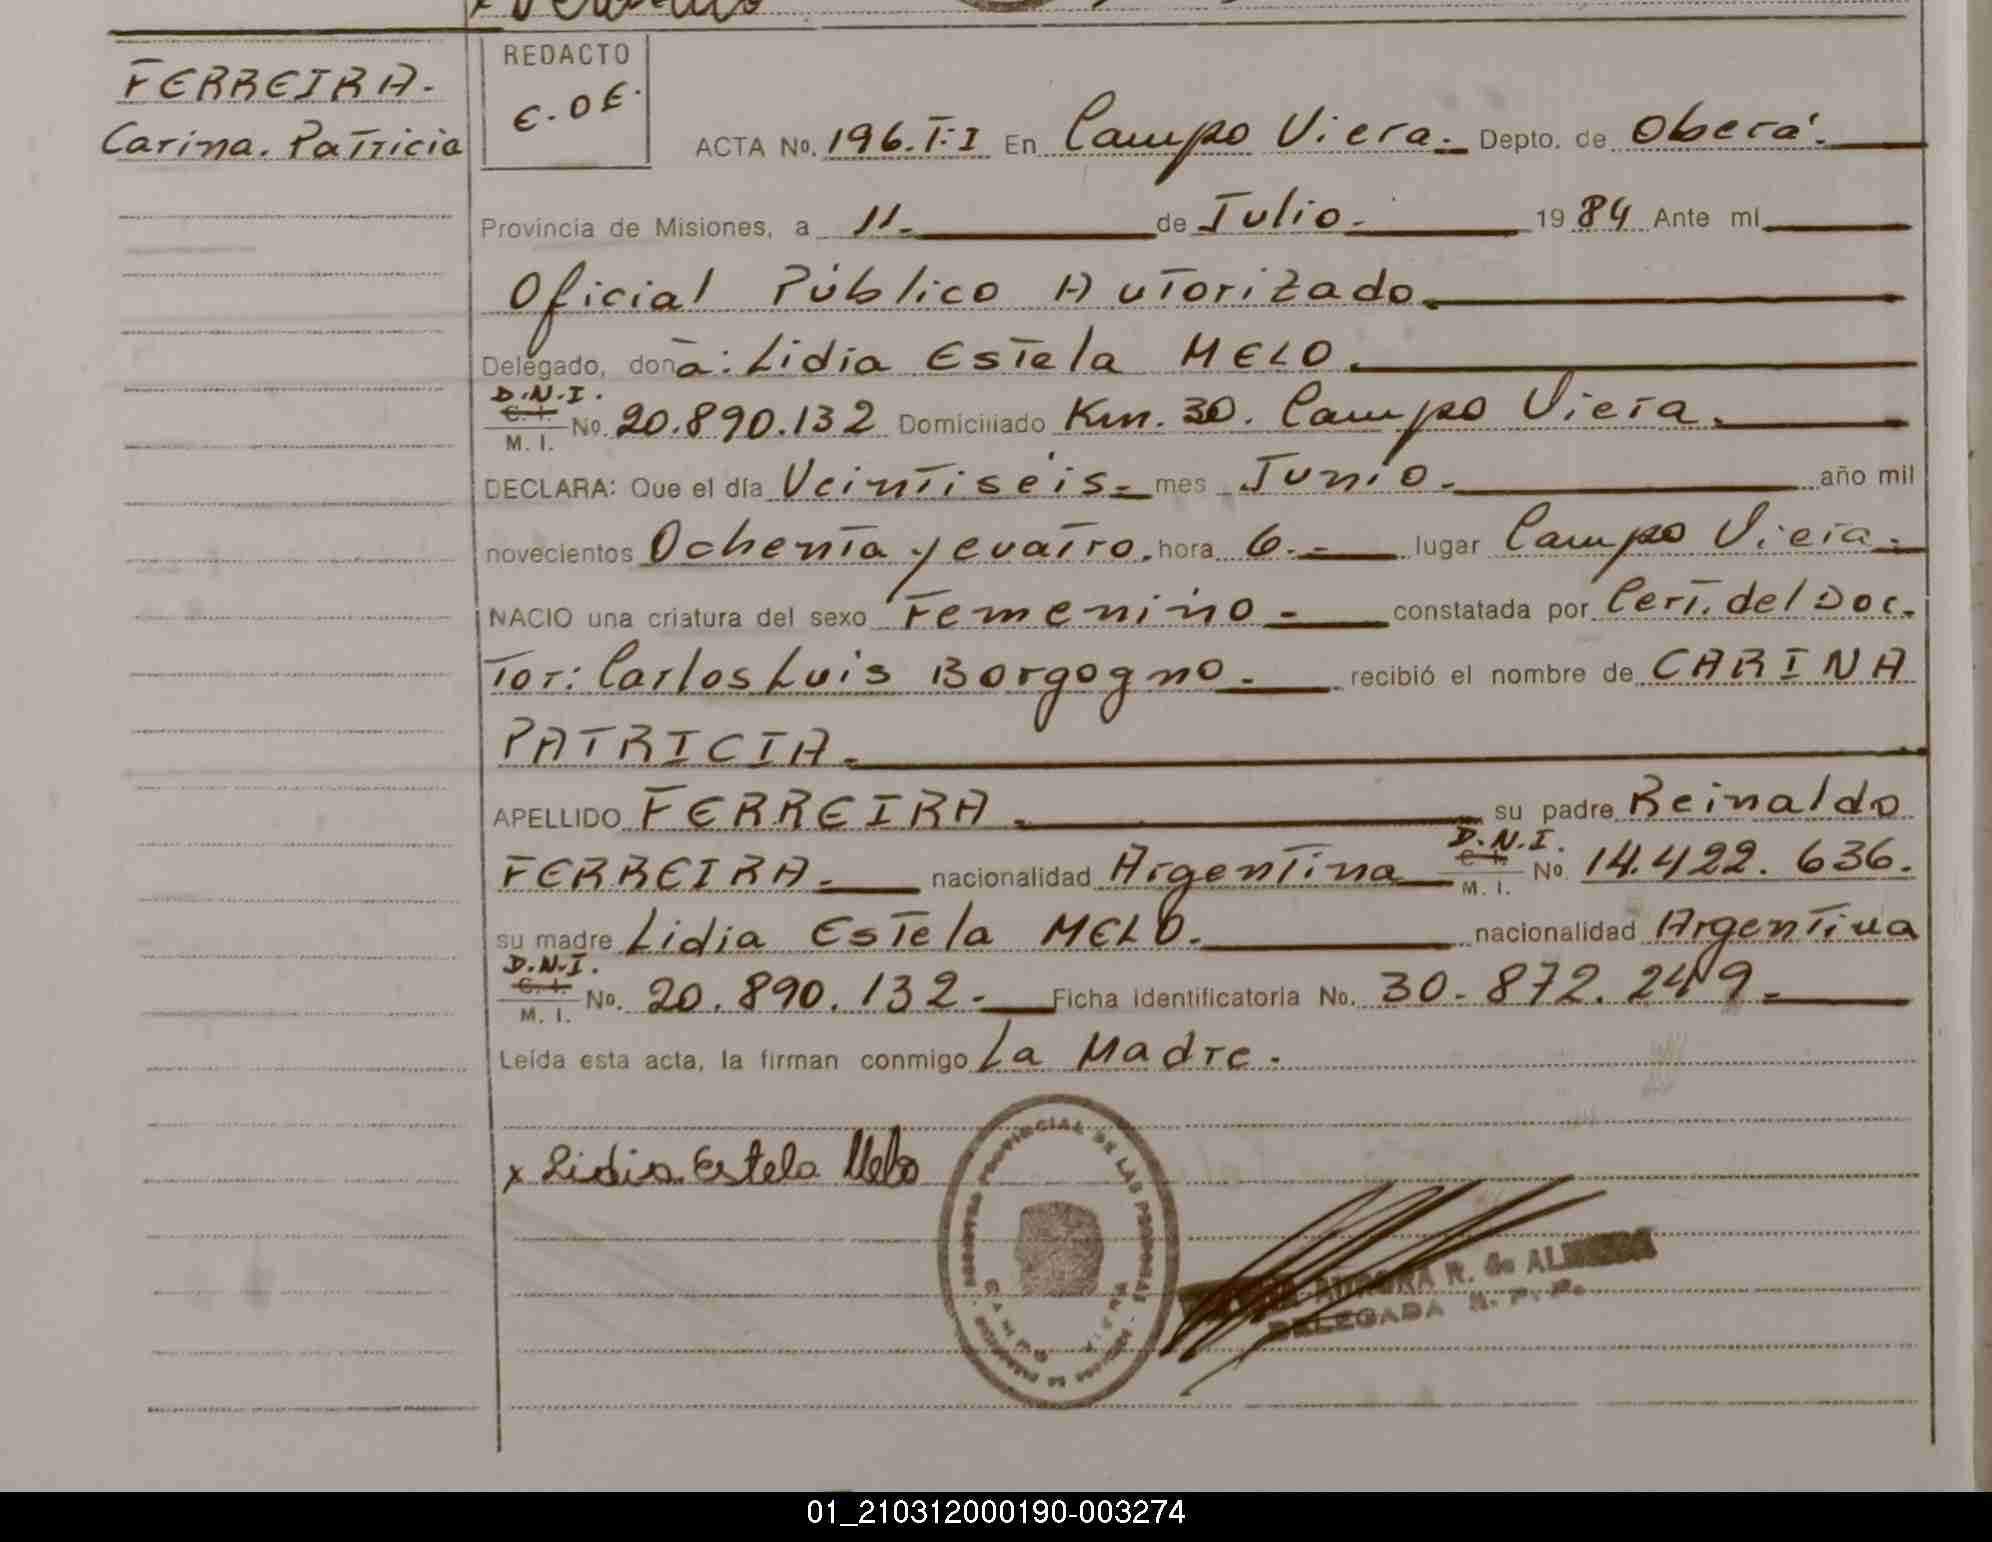 FERREIRA.
Carina. Patricia
REDACTO
E. O E.
ACTA No. 196. T: I En Campo Viera.- Depto. de Oberá.-
Provincia de Misiones, a 11.- de Julio.- 1984 Ante mí
Oficial Público Autorizado.
Delegado, doña: Lidia Estela MELO.
D.N.I.
C. I.
M. I. No. 20.890.132 Domiciliado Km. 30. Campo Viera.
DECLARA: Que el día Veintiséis.- mes Junio.- año mil
novecientos Ochenta y cuatro. hora 6.- lugar Campo Viera.-
NACIO una criatura del sexo Femenino- constatada por Cert. del Doc-
tor: Carlos Luis Borgogno.- recibió el nombre de CARINA
PATRICIA.
APELLIDO FERREIRA.- su padre Reinaldo
FERREIRA.- nacionalidad Argentina D.N.I. C. I. M. I. No. 14.422.636.
su madre Lidia Estela MELO.- nacionalidad Argentina
D.N.I.
C. I.
M. I. No. 20.890.132.- Ficha identificatoria No. 30.872.249.-
Leída esta acta, la firman conmigo La Madre.
x Lidia Estela Melo
PROVINCIAL DE LAS PERSONAS
CAMPO VIERA
AURORA R. de
DELEGADA R. P. P.
01_210312000190-003274